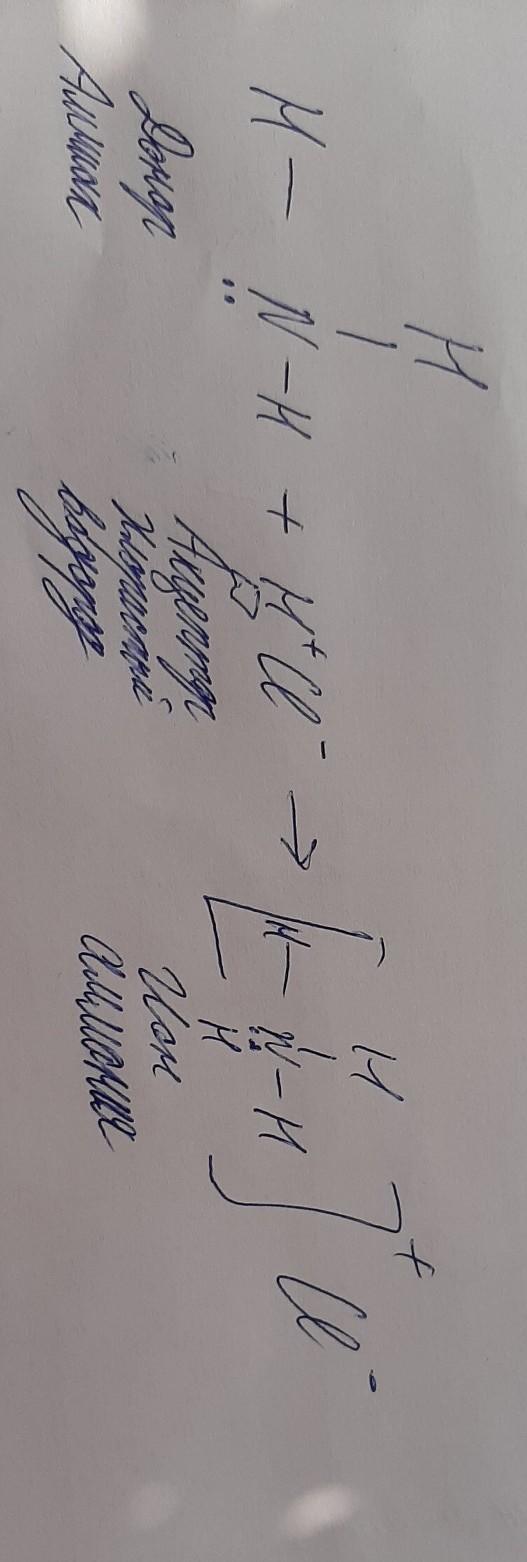 H
|
H — N — H + H⁺ Cl⁻ → [H — N — H]⁺ Cl⁻
Донор
Аммиак
Акцептор
Хлористый
водород
H
|
··
H
Ион
аммония